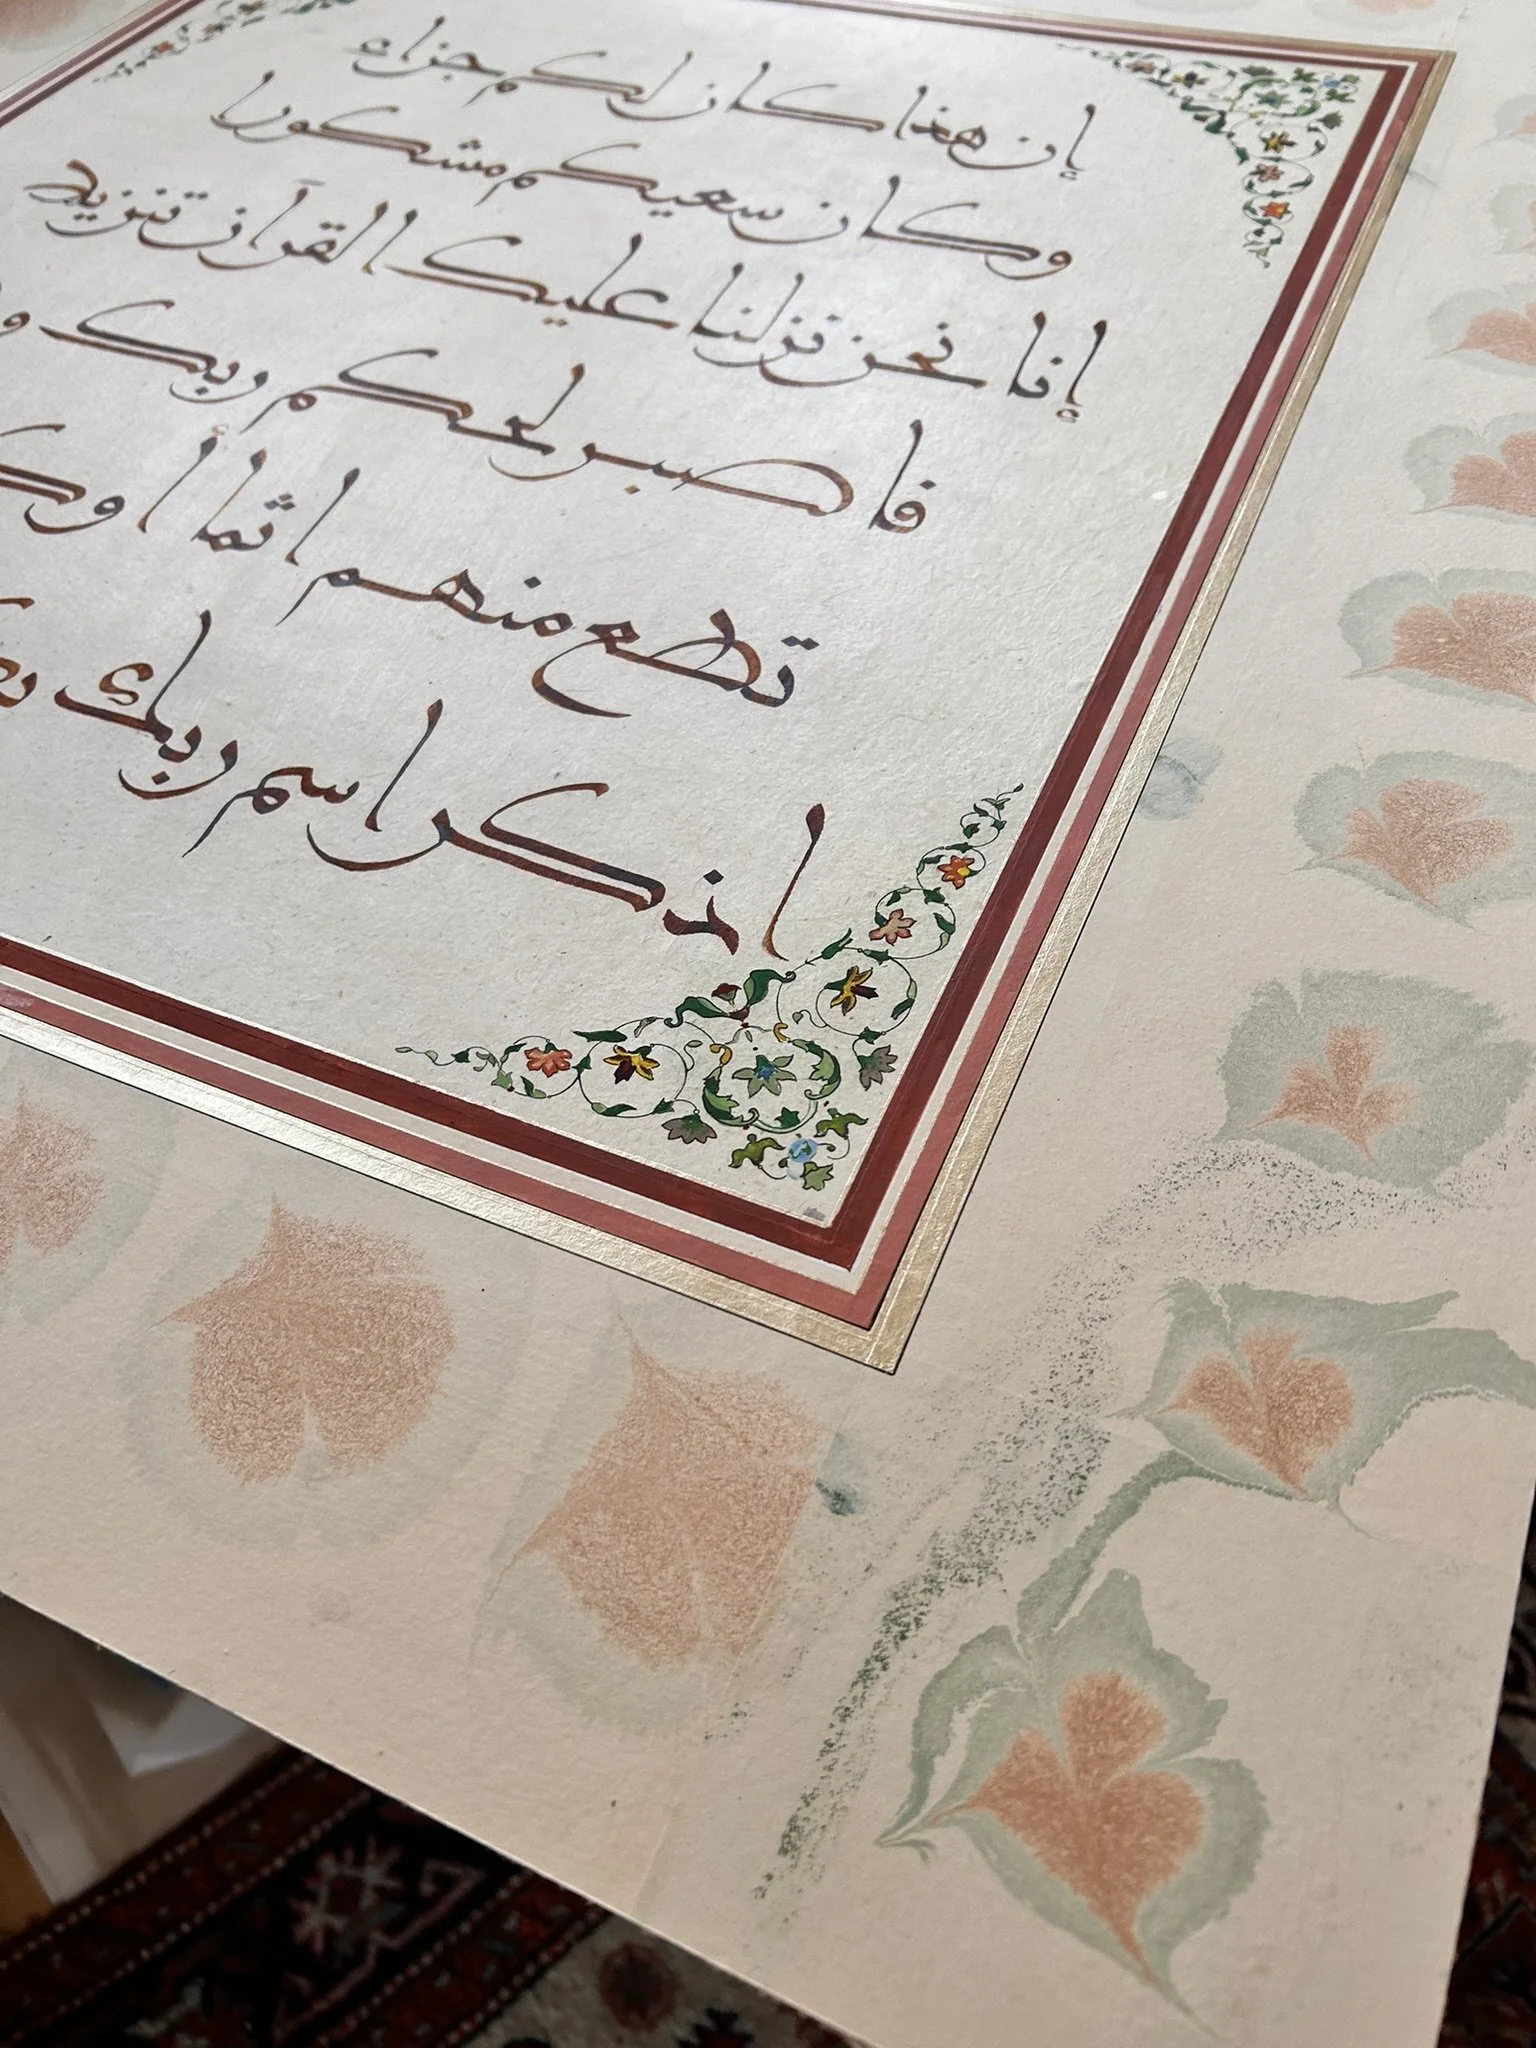 إن هذا كان لكم جزاء
وكان سعيكم مشكورا
إنا نحن نزلنا عليك القرآن تنزيلا
فاصبر لحكم ربك و
تطع منهم اثما أو
اذكر اسم ربك